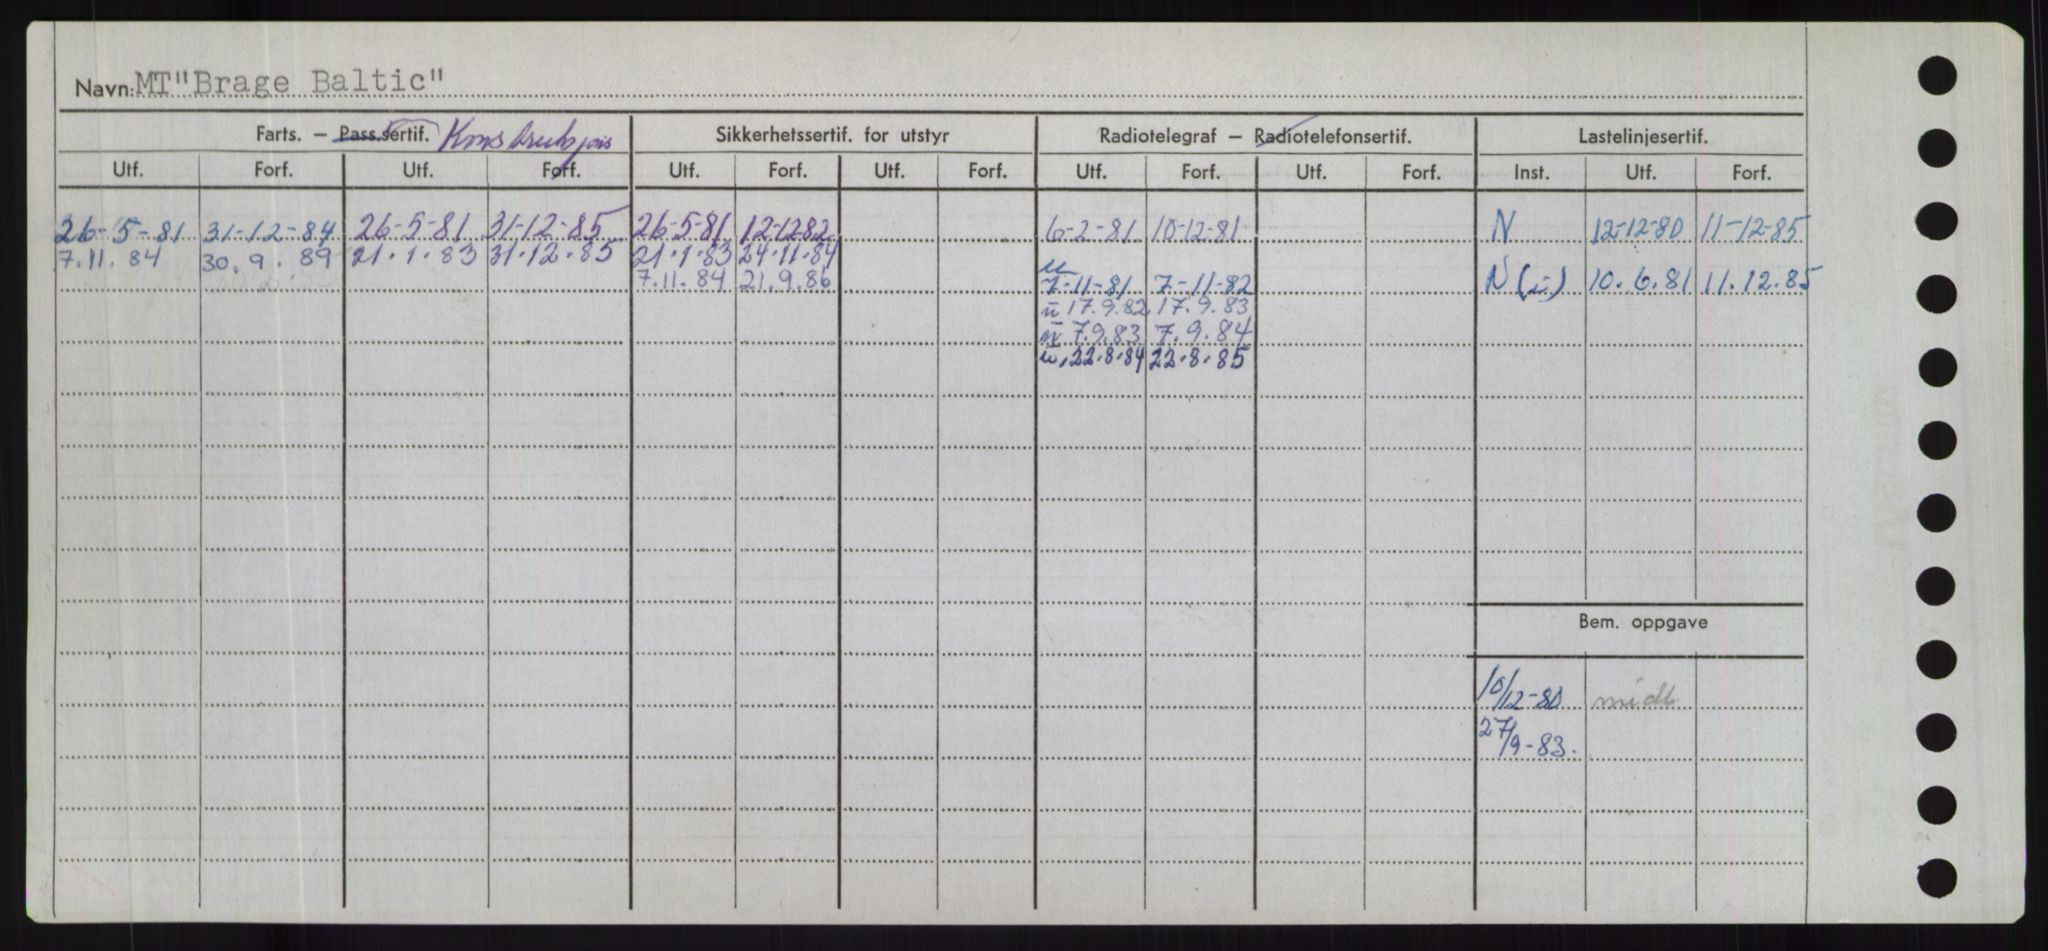 Navn: MT "Brage Baltic"
Farts. — Pass.sertif. Konstruksjons Sikkerhetssertif. for utstyr Radiotelegraf — Radiotelefonsertif. Lastelinjesertif.
Utf. Forf. Utf. Forf. Utf. Forf. Utf. Forf. Utf. Forf. Utf. Forf. Inst. Utf. Forf.
26-5-81 31-12-84 26-5-81 31-12-85 26-5-81 12-12-82 6-2-81 10-12-81 N 12-12-80 11-12-85
7.11.84 30.9.89 21.1.83 31.12.85 21.1.83 24.11.84
7.11.84 21.9.86 7-11-81 7-11-82 N (i) 10.6.81 11.12.85
17.9.82 17.9.83
7.9.83 7.9.84
22.8.84 22.8.85
Bem. oppgave
10/12-80 midl
27/9-83.